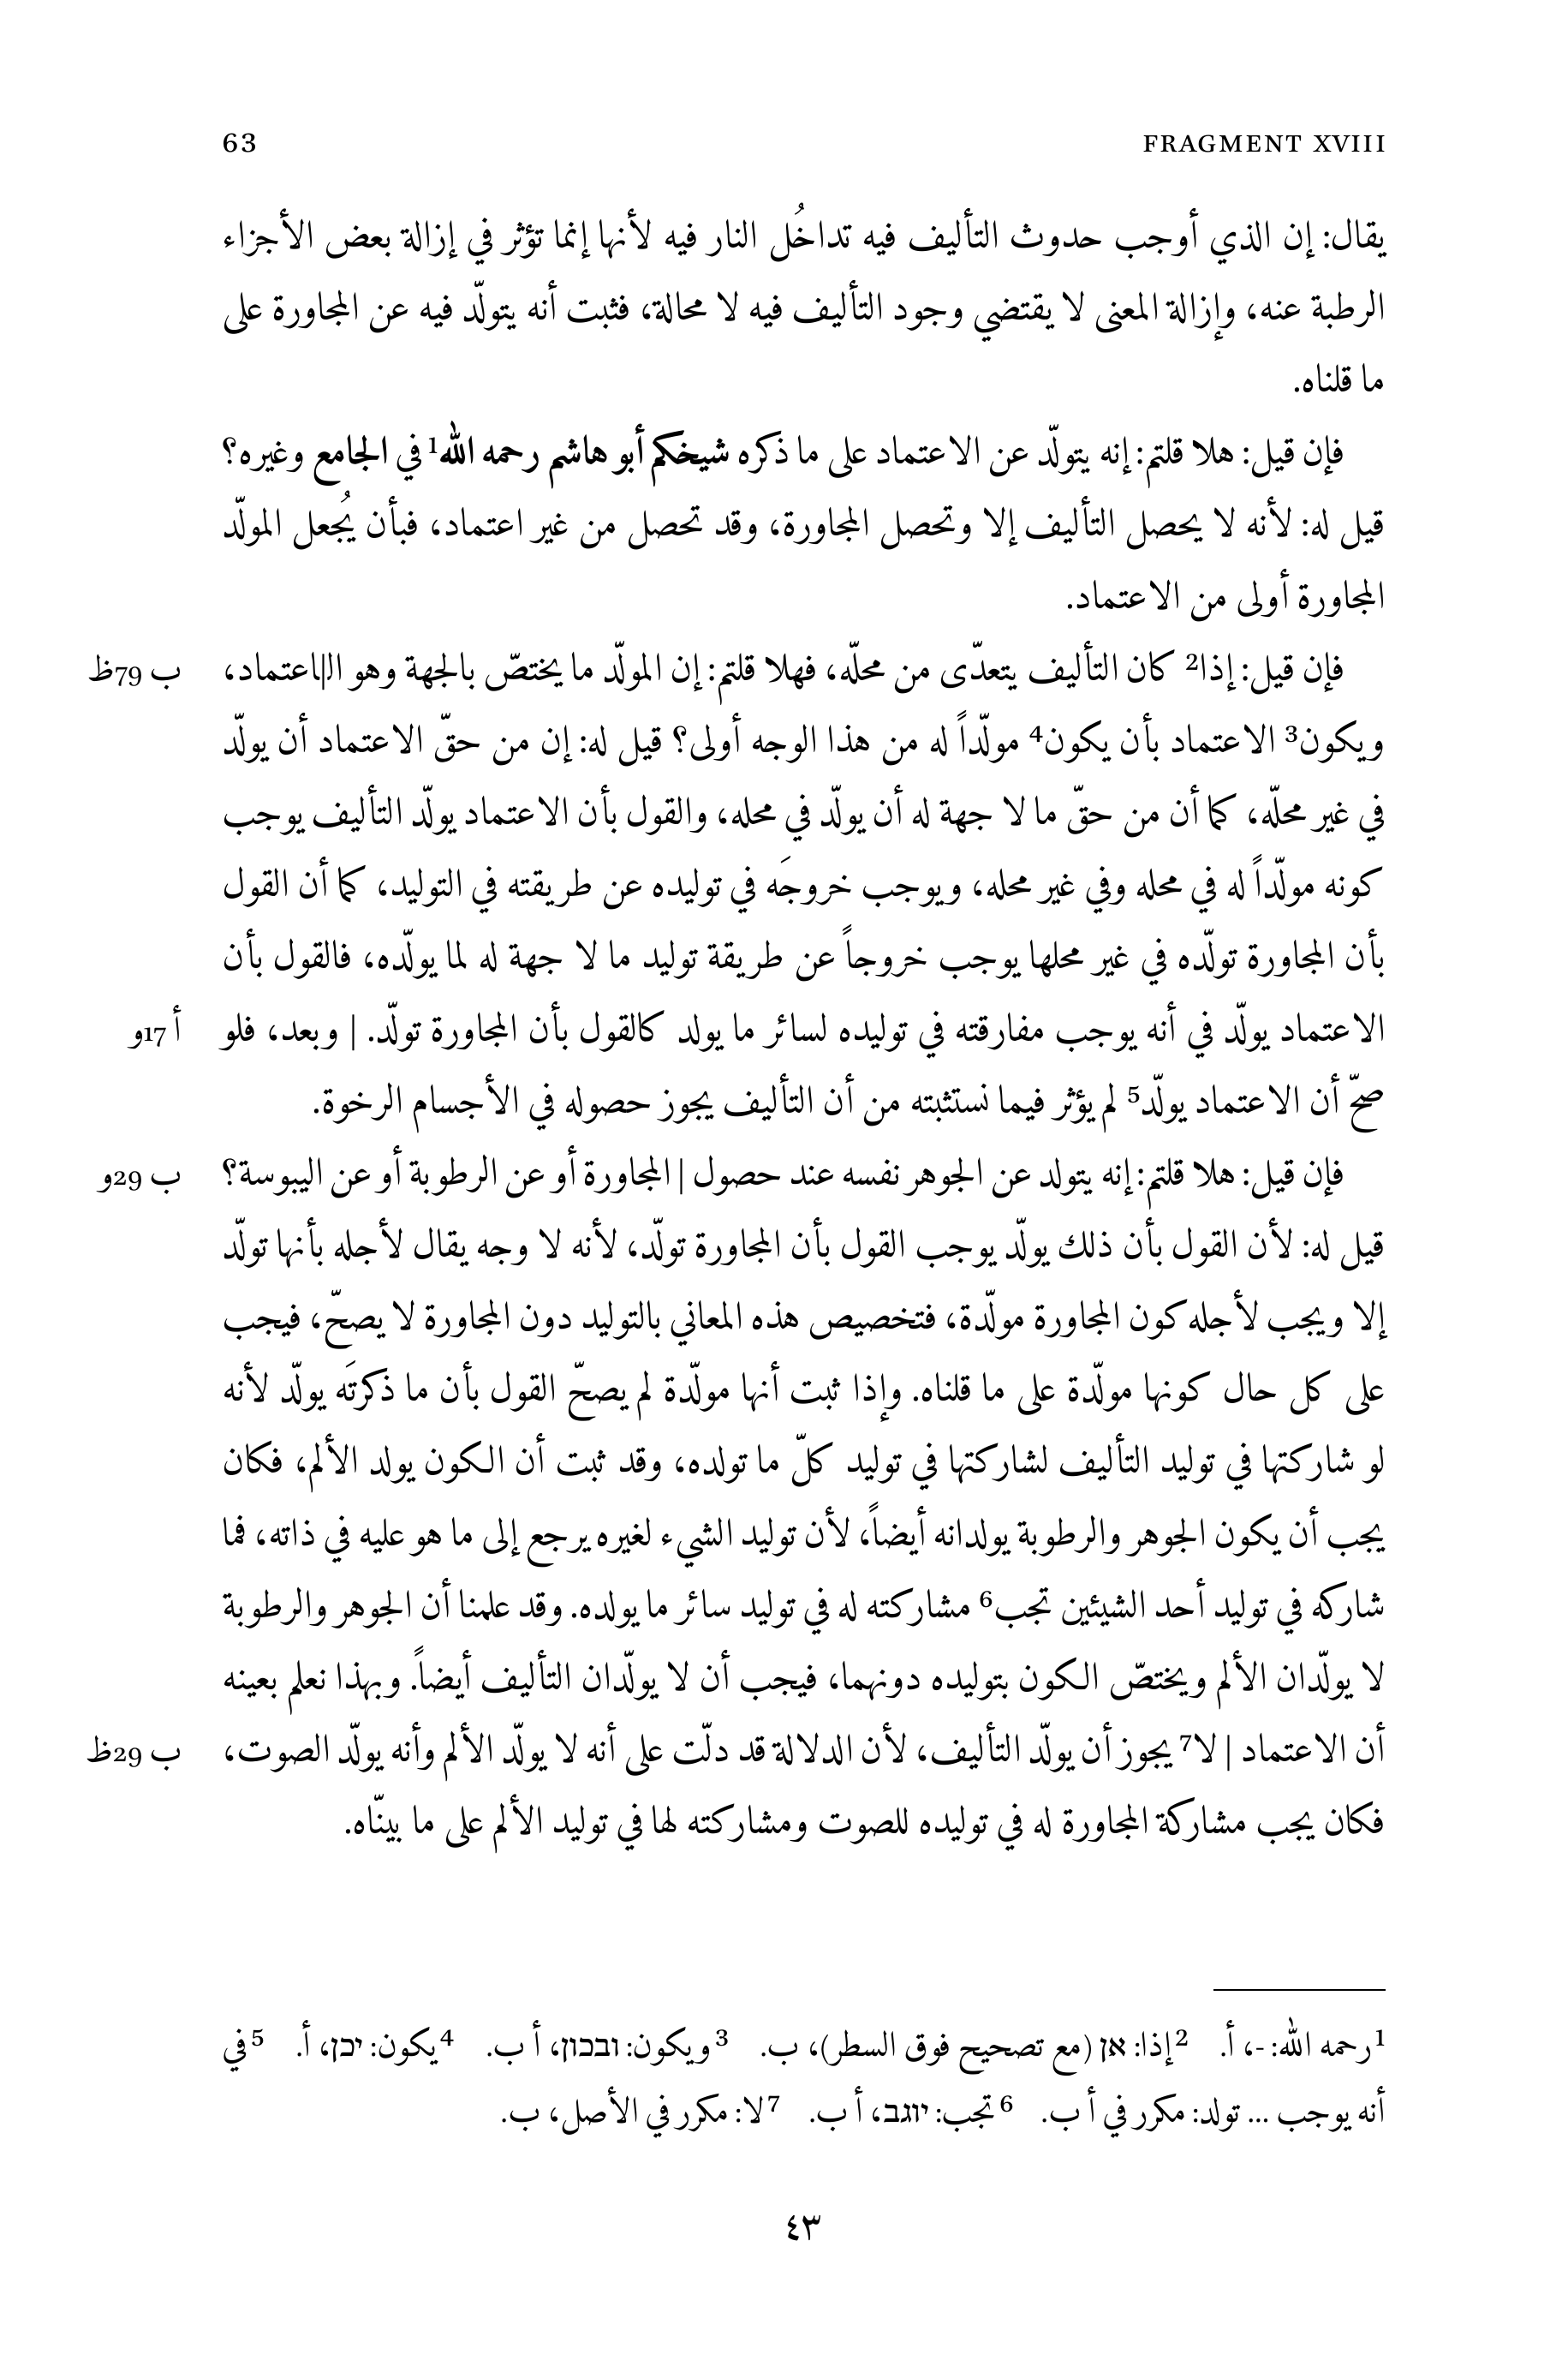 63 FRAGMENT XVIII
يقال: إن الذي أوجب حدوث التأليف فيه تداخُل النار فيه لأنها إنما تؤثر في إزالة بعض الأجزاء
الرطبة عنه، وإزالة المعنى لا يقتضي وجود التأليف فيه لا محالة، فثبت أنه يتولّد فيه عن المجاورة على
ما قلناه.
فإن قيل: هلا قلتم: إنه يتولّد عن الاعتماد على ما ذكره شيخكم أبو هاشم رحمه الله1 في الجامع وغيره؟
قيل له: لأنه لا يحصل التأليف إلا وتحصل المجاورة، وقد تحصل من غير اعتماد، فبأن يُجعل المولّد
المجاورة أولى من الاعتماد.
فإن قيل: إذا2 كان التأليف يتعدّى من محلّه، فهلا قلتم: إن المولّد ما يختصّ بالجهة وهو ال|اعتماد، ب 79ظ
ويكون3 الاعتماد بأن يكون4 مولّداً له من هذا الوجه أولى؟ قيل له: إن من حقّ الاعتماد أن يولّد
في غير محلّه، كما أن من حقّ ما لا جهة له أن يولّد في محله، والقول بأن الاعتماد يولّد التأليف يوجب
كونه مولّداً له في محله وفي غير محله، ويوجب خروجَه في توليده عن طريقته في التوليد، كما أن القول
بأن المجاورة تولّده في غير محلها يوجب خروجاً عن طريقة توليد ما لا جهة له لما يولّده، فالقول بأن
الاعتماد يولّد في أنه يوجب مفارقته في توليده لسائر ما يولد كالقول بأن المجاورة تولّد. | وبعد، فلو أ 17و
صحّ أن الاعتماد يولّد5 لم يؤثر فيما نستثبته من أن التأليف يجوز حصوله في الأجسام الرخوة.
فإن قيل: هلا قلتم: إنه يتولد عن الجوهر نفسه عند حصول | المجاورة أو عن الرطوبة أو عن اليبوسة؟ ب 29و
قيل له: لأن القول بأن ذلك يولّد يوجب القول بأن المجاورة تولّد، لأنه لا وجه يقال لأجله بأنها تولّد
إلا ويجب لأجله كون المجاورة مولّدة، فتخصيص هذه المعاني بالتوليد دون المجاورة لا يصحّ، فيجب
على كل حال كونها مولّدة على ما قلناه. وإذا ثبت أنها مولّدة لم يصحّ القول بأن ما ذكرتَه يولّد لأنه
لو شاركتها في توليد التأليف لشاركتها في توليد كلّ ما تولده، وقد ثبت أن الكون يولد الألم، فكان
يجب أن يكون الجوهر والرطوبة يولدانه أيضاً، لأن توليد الشيء لغيره يرجع إلى ما هو عليه في ذاته، فما
شاركه في توليد أحد الشيئين تجب6 مشاركته له في توليد سائر ما يولده. وقد علمنا أن الجوهر والرطوبة
لا يولّدان الألم ويختصّ الكون بتوليده دونهما، فيجب أن لا يولّدان التأليف أيضاً. وبهذا نعلم بعينه
أن الاعتماد | لا7 يجوز أن يولّد التأليف، لأن الدلالة قد دلّت على أنه لا يولّد الألم وأنه يولّد الصوت، ب 29ظ
فكان يجب مشاركة المجاورة له في توليده للصوت ومشاركته لها في توليد الألم على ما بينّاه.
1 رحمه الله: -، أ. 2 إذا: אן (مع تصحيح فوق السطر)، ب. 3 ويكون: ובכון، أ ب. 4 يكون: יכן، أ. 5 في
أنه يوجب ... تولد: مكرر في أ ب. 6 تجب: יוגב، أ ب. 7 لا: مكرر في الأصل، ب.
٤٣